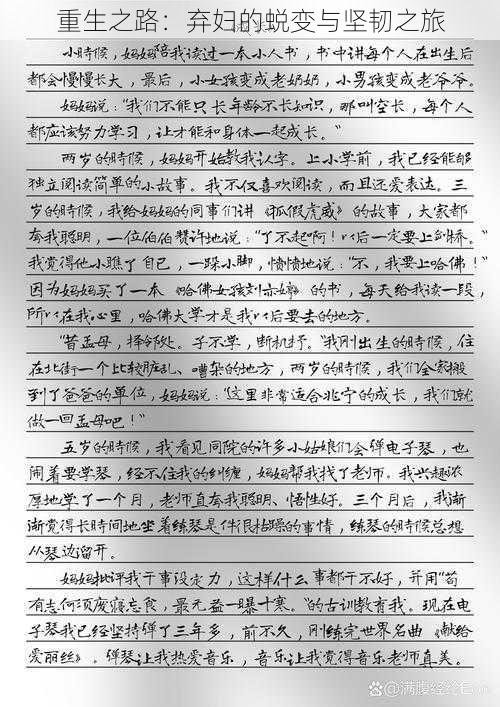 重生之路：弃妇的蜕变与坚韧之旅
小时候，妈妈陪我读过一本小人书，书中讲每个人在出生后
都会慢慢长大，最后，小女孩变成老奶奶，小男孩变成老爷爷。
妈妈说："我们不能只长年龄不长知识，那叫空长，每个人
都应该努力学习，让才能和身体一起成长。"
两岁的时候，妈妈开始教我认字。上小学前，我已经能够
独立阅读简单的小故事。我不仅喜欢阅读，而且还爱表达。三
岁的时候，我给妈妈的同事们讲《狐假虎威》的故事，大家都
夸我聪明，一位伯伯赞许地说："了不起啊！以后一定要上剑桥。"
我觉得他小瞧了自己，一跺小脚，愤愤地说："不，我要上哈佛！"
因为妈妈买了一本《哈佛女孩刘亦婷》的书，每天给我读一段，
所以在我心里，哈佛大学才是我以后要去的地方。
"昔孟母，择邻处。子不学，断机杼。"我刚出生的时候，住
在北街一个比较脏乱、嘈杂的地方，两岁的时候，我们全家搬
到了爸爸的单位，妈妈说："这里非常适合兆宁的成长，我们就
做一回孟母吧！"
五岁的时候，我看见同院的许多小姑娘们会弹电子琴，也
闹着要学琴，经不住我的纠缠，妈妈帮我找了老师。我兴趣浓
厚地学了一个月，老师直夸我聪明、悟性好。三个月后，我渐
渐觉得长时间地坐着练琴是件很枯躁的事情，练琴的时候总想
从琴边溜开。
妈妈批评我干事没定力，这样什么事都干不好，并用"苟
有志何须废寝忘食，最无益一曝十寒。"的古训教育我。现在电
子琴我已经坚持弹了三年多，前不久，刚练完世界名曲《献给
爱丽丝》。弹琴让我热爱音乐，音乐让我觉得音乐老师真美。